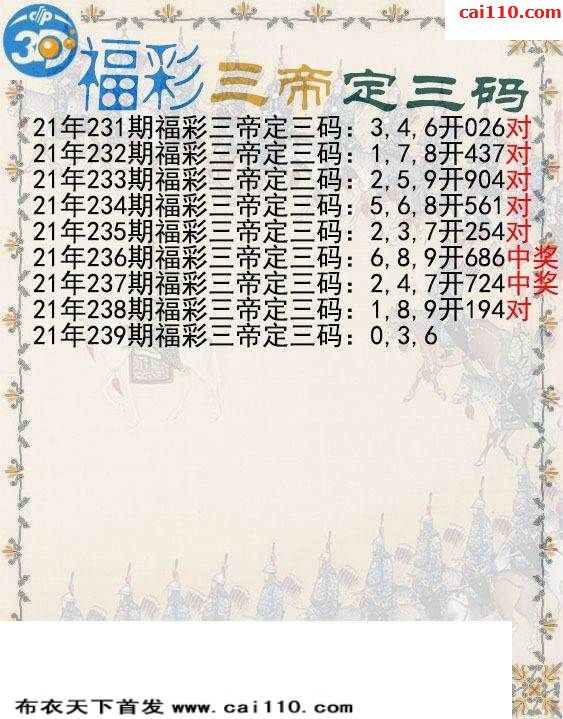 cai110.com
3D
福彩三帝定三码
21年231期福彩三帝定三码：3,4,6开026对
21年232期福彩三帝定三码：1,7,8开437对
21年233期福彩三帝定三码：2,5,9开904对
21年234期福彩三帝定三码：5,6,8开561对
21年235期福彩三帝定三码：2,3,7开254对
21年236期福彩三帝定三码：6,8,9开686中奖
21年237期福彩三帝定三码：2,4,7开724中奖
21年238期福彩三帝定三码：1,8,9开194对
21年239期福彩三帝定三码：0,3,6
布衣天下首发 www.cai110.com